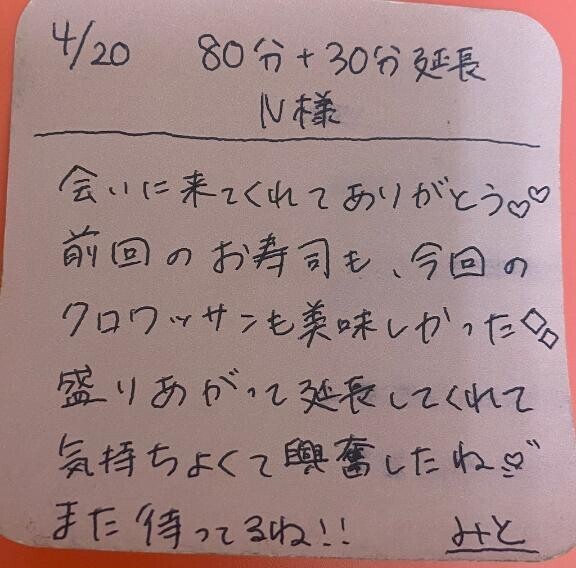 4/20 80分+30分延長
N様
会いに来てくれてありがとう♡♡
前回のお寿司も、今回の
クロワッサンも美味しかった◇◇
盛りあがって延長してくれて
気持ちよくて興奮したね♡
また待ってるね!!
みと